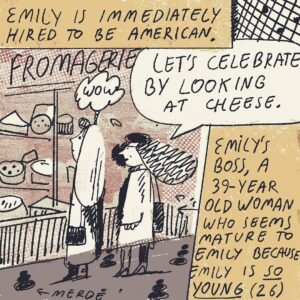 EMILY IS IMMEDIATELY
HIRED TO BE AMERICAN.
FROMAGERIE
WOW
LET'S CELEBRATE
BY LOOKING
AT CHEESE.
EMILY'S
BOSS, A
39-YEAR
OLD WOMAN
WHO SEEMS
MATURE TO
EMILY BECAUSE
EMILY IS SO
YOUNG (26)
← MERDE